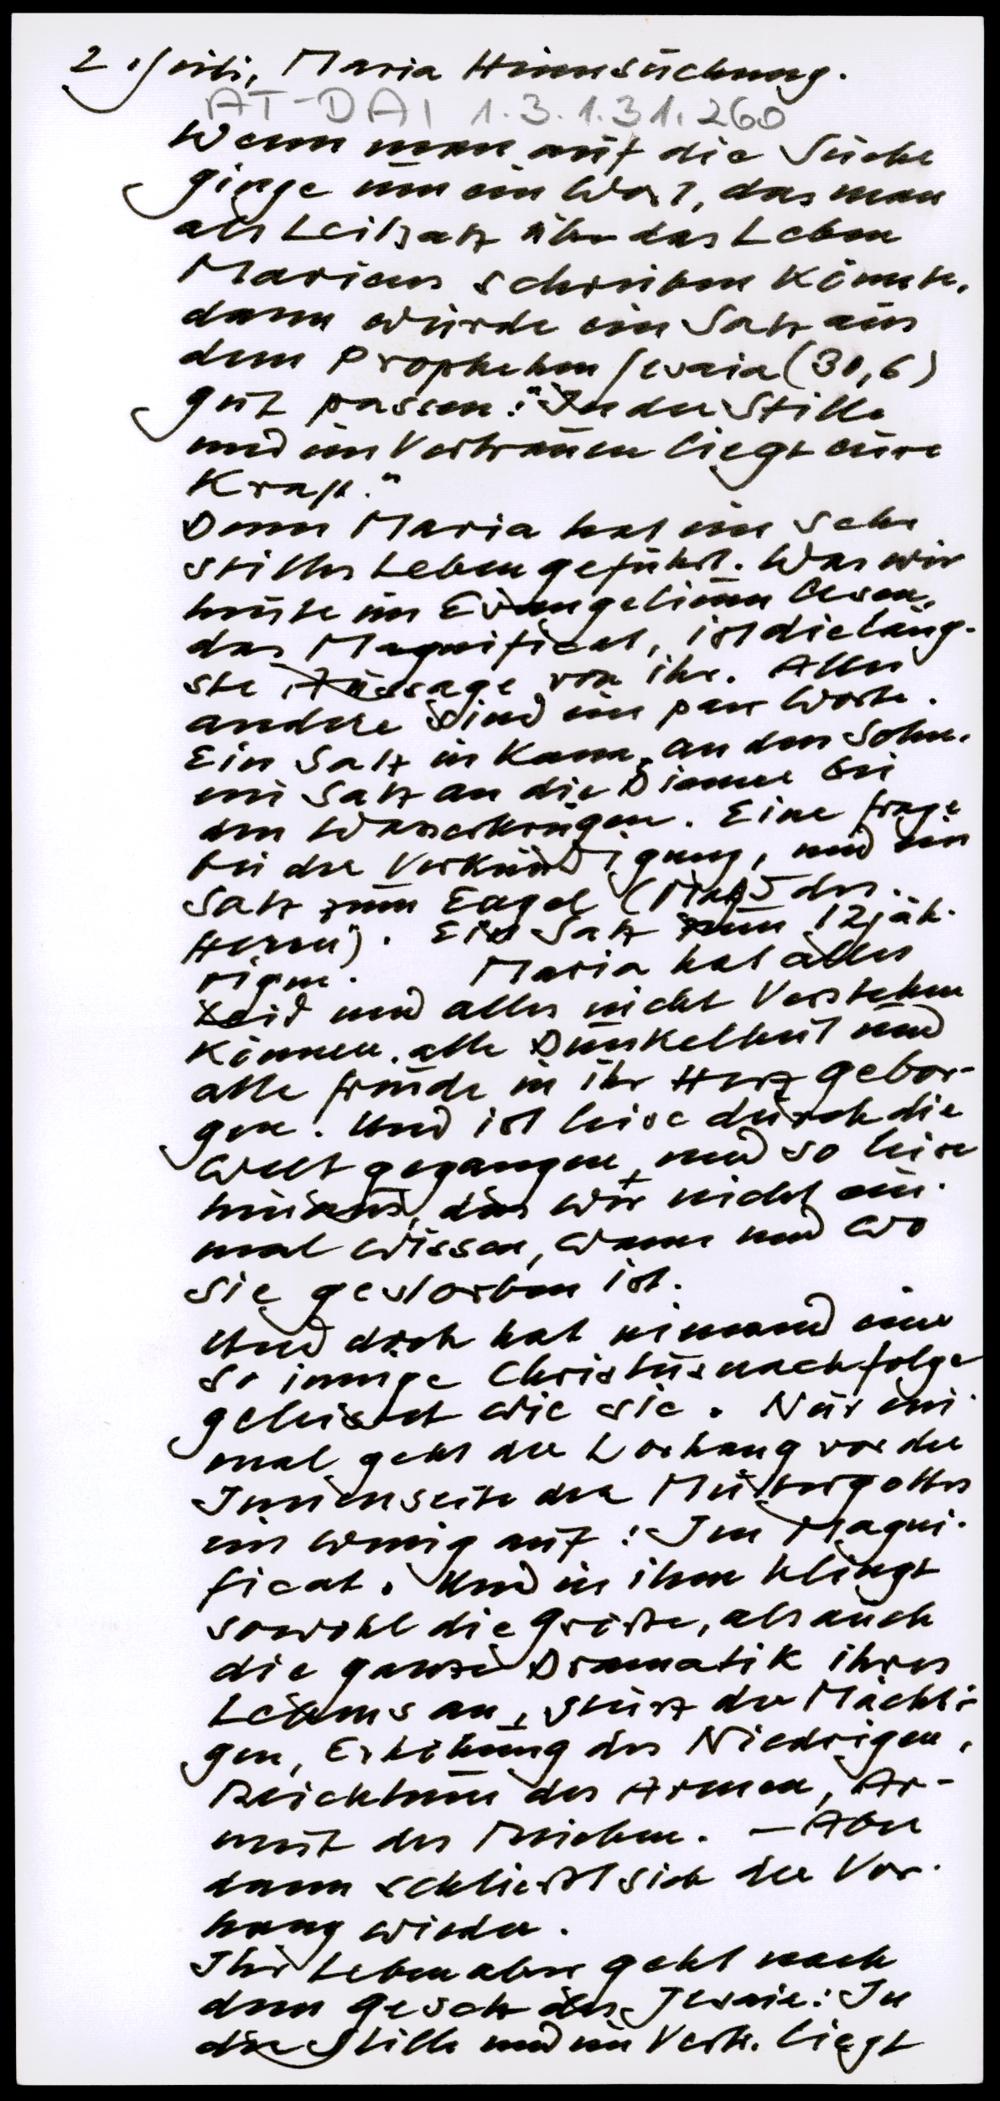 2. Juli, Maria Heimsuchung.
AT-DAI 1.3.1.31.260
Wenn man auf die Suche
ginge um ein Wort, das man
als Leitsatz über das Leben
Mariens schreiben könnte,
dann würde ein Satz aus
dem Propheten Jesaia (30,6)
gut passen: "In der Stille
und im Vertrauen liegt eure
Kraft."
Denn Maria hat ein sehr
stilles Leben geführt. Was wir
heute im Evangelium lesen,
das Magnificat, ist die läng-
ste Aussage von ihr. Alles
andere sind ein paar Worte.
Ein Satz in Kana, an den Sohn.
ein Satz an die Diener bei
den Wasserkrügen. Eine Frage
bei der Verkündigung, und ein
Satz zum Engel (Magd des
Herrn). Ein Satz zum 12jäh-
rigen. Maria hat alles
Leid und alles nicht Verstehen
Können, alle Dunkelheit und
alle Freude in ihr Herz gebor-
gen. Und ist leise durch die
Welt gegangen, und so leise
hinaus, dass wir nicht ein-
mal wissen, wann und wo
sie gestorben ist.
Und doch hat niemand eine
so innige Christusnachfolge
geleistet wie sie. Nur ein-
mal geht der Vorhang vor der
Innenseite der Muttergottes
ein wenig auf: Im Magni-
ficat. Und in ihm klingt
sowohl die Grösse, als auch
die ganze Dramatik ihres
Lebens an, Sturz der Mächti-
gen, Erhöhung des Niedrigen,
Reichtum des Armen, Ar-
mut des Reichen. – Aber
dann schliesst sich der Vor-
hang wieder.
Ihr Leben aber geht nach
dem Gesetz des Jesaia: In
der Stille und im Vertr. liegt